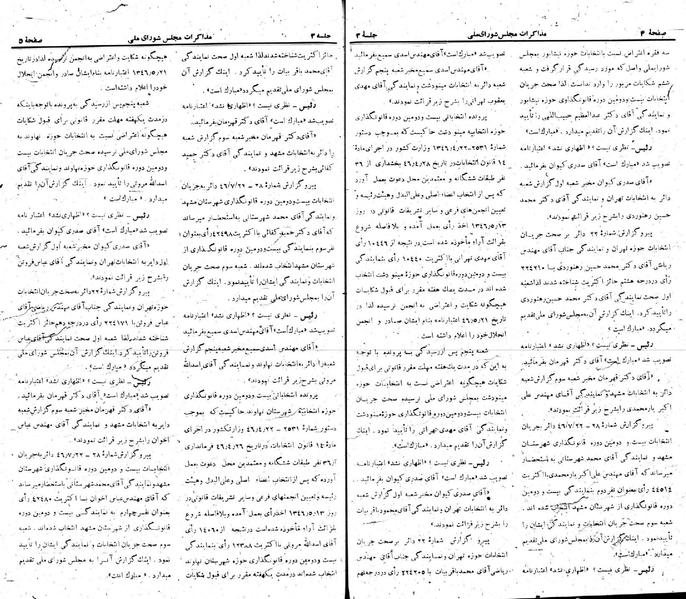 صفحهٔ ۴ مذاکرات مجلس شورای ملی جلسهٔ ۳
سه فقره اعتراض نسبت بانتخابات حوزه نیشابور بمجلس
شورایملی واصل که مورد رسیدگی قرار گرفت و شعبه
ششم شکایات مزبور را وارد ندانست لذا صحت جریان
انتخابات بیست و دومین دوره قانونگذاری نیشابور
و نمایندگی آقای عبدالعظیم حبیب‌اللهی را تأیید
کرد. اینک گزارش آن تقدیم میدارد. «مبارک است»
رئیس ـ نظری نیست؟ «اظهاری نشد» اعتبارنامه
تصویب شد «مبارک است» آقای صدری کیوان بفرمائید.
«آقای صدری کیوان مخبر شعبه اول گزارش شعبه
دائر به انتخابات تهران و نمایندگی آقای محمد
حسین رهنوردی را بشرح زیر قرائت نمودند»
پیرو گزارش شماره ۲۲ دائر بر صحت جریان
انتخابات حوزه تهران و نمایندگی جناب آقای مهندس
ریاضی آقای محمد حسین رهنوردی با ۲۲۴۲۱۰
رأی دردرجه هشتم حائز اکثریت شناخته شدند لذاشعبه
اول صحت نمایندگی آقای محمدحسین رهنوردی
را تأیید کرد. اینک گزارش آن بمجلس شورای ملی تقدیم
میگردد. «مبارک است»
رئیس ـ نظری نیست؟ «اظهاری نشد» اعتبارنامه
تصویب شد «مبارک است» آقای دکتر قهرمان بفرمائید.
«آقای دکتر قهرمان مخبر شعبه سوم گزارش شعبه
را دائر به انتخابات مشهد و نمایندگی آقای مهندس علی
اکبر یارمحمدی را بشرح زیر قرائت نمودند»
پیرو گزارش شمارهٔ ۲۸ ـ ۴۶/۷/۲۲ دائر بجریان
انتخابات بیست و دومین دوره قانونگذاری شهرستان
مشهد و نمایندگی آقای محمد شهرستانی باستحضار
میرساند که آقای مهندس علی اکبر یارمحمدی با اکثریت
۴۴۵۱۴ رأی بعنوان نفر دوم بنمایندگی بیست و دومین
دوره قانونگذاری از شهرستان مشهد انتخاب شده‌اند.
شعبه سوم صحت جریان انتخابات و نمایندگی ایشان را
تأیید نمود. اینک گزارش آن را بمجلس شورای ملی تقدیم
میدارد «مبارک است»
رئیس ـ نظری نیست؟ «اظهاری نشد» اعتبارنامه
تصویب شد «مبارک است» آقای مهندس اسدی سمیع بفرمائید
«آقای مهندس اسدی سمیع مخبر شعبه پنجم گزارش
شعبه را دائر به انتخابات مینودشت و نمایندگی آقای مهدی
یعقوب تهرانی را بشرح زیر قرائت نمودند»
پرونده انتخاباتی بیست و دومین دوره قانونگذاری
حوزه انتخابیه مینو دشت حاکیست که بموجب دستور
۲۵۳۱ ـ ۱۳۴۶/۴/۲۲ وزارت کشور در اجرای مادهٔ
۱۴ قانون انتخابات در تاریخ ۴۶/۴/۲۸ بخشداری از ۳۶
نفر طبقات ششگانه و معتمدین محل دعوت بعمل آورد
که پس از انتخاب اعضاء اصلی و علی‌البدل وهیئت رئیسه و
تعیین انجمنهای فرعی و سایر تشریفات قانونی در روز
۱۳۴۶/۵/۱۳ اخذ رأی بعمل آمده و بلافاصله شروع
بقرائت آراء مأخوذه شده است در نتیجه از ۱۰۴۴۶ رأی
آقای مهدی تهرانی با اکثریت ۱۰۴۴۰ رأی بنمایندگی
بیست و دومین دوره قانونگذاری حوزه مینو دشت انتخاب
شده‌اند در مدت یک هفته مقرر برای قبول شکایات
هیچگونه شکایت و اعتراضی به انجمن نرسیده لذا در
تاریخ ۴۶/۵/۲۱ اعتبارنامه بنام ایشان صادر و انجمن
انحلال خود را اعلام داشته است
شعبه پنجم پس از رسیدگی به پرونده با توجه
به این که در مدت یکهفته مهلت مقرر قانونی برای قبول
شکایات هیچگونه اعتراضی نسبت به انتخابات حوزه
مینودشت بمجلس شورای ملی نرسیده صحت جریان
انتخابات بیست و دومین دوره قانونگذاری حوزه مینودشت
و نمایندگی آقای مهدی تهرانی را تأیید نمود. اینک
گزارش آن را تقدیم میدارد. «مبارک است».
رئیس ـ نظری نیست؟ «اظهاری نشد» اعتبارنامه
تصویب شد «مبارک است» آقای صدری کیوان بفرمائید.
«آقای صدری کیوان مخبر شعبه اول گزارش شعبه
را دائر به انتخابات تهران و نمایندگی آقای محمدباقر بیات
را بشرح زیر قرائت نمودند»
پیرو گزارش شماره ۲۲ دائر به صحت جریان
انتخابات حوزه تهران و نمایندگی جناب آقای مهندس
ریاضی آقای محمد باقر بیات با ۲۲۴۲۰۵ رأی دردرجه نهم
جلسهٔ ۳ مذاکرات مجلس شورای ملی صفحهٔ ۵
حائز اکثریت شناخته شدند لذا شعبه اول صحت نمایندگی
آقای محمد باقر بیات را تأیید کرد. اینک گزارش آن
بمجلس شورای ملی تقدیم میگردد «مبارک است».
رئیس ـ نظری نیست؟ «اظهاری نشد» اعتبارنامه
تصویب شد «مبارک است» آقای دکتر قهرمان بفرمائید.
«آقای دکتر قهرمان مخبر شعبه سوم گزارش شعبه
را دائر به انتخابات مشهد و نمایندگی آقای دکتر حمید
کفائی بشرح زیر قرائت نمودند»
پیرو گزارش شماره ۲۸ ـ ۴۶/۷/۲۲ دائر بجریان
انتخابات بیست ودومین دوره قانونگذاری شهرستان مشهد
و نمایندگی آقای محمد شهرستانی باستحضار میرساند
که آقای دکتر حمید کفائی با اکثریت ۴۲۴۹۸ رأی بعنوان
نفر سوم بنمایندگی بیست ودومین دوره قانونگذاری از
شهرستان مشهد انتخاب شده‌اند. شعبه سوم صحت جریان
انتخابات و نمایندگی ایشان را تأیید نمود. اینک گزارش
آن را بمجلس شورای ملی تقدیم میدارد «مبارک است»
رئیس ـ نظری نیست؟ «اظهاری نشد» اعتبارنامه
تصویب شد «مبارک است» آقای مهندس اسدی سمیع بفرمائید.
«آقای مهندس اسدی سمیع مخبر شعبه پنجم گزارش
شعبه را دائر به انتخابات نهاوند و نمایندگی آقای اسدالله
مروتی بشرح زیر قرائت نمودند»
پرونده انتخاباتی بیست و دومین دوره قانونگذاری
حوزه انتخابیه شهرستان نهاوند حاکیست که بموجب
دستور شماره ۲۵۳۱ ـ ۴۶/۴/۲۲ وزارت کشور در اجرای
مادهٔ ۱۴ قانون انتخابات، در تاریخ ۴۶/۴/۲۶ فرمانداری
از ۳۶ نفر طبقات ششگانه و معتمدین محل دعوت بعمل
آورده که پس از انتخاب اعضاء اصلی وعلی‌البدل وهیئت
رئیسه و تعیین انجمنهای فرعی و سایر تشریفات قانونی در
روز ۱۳۴۶/۵/۱۳ اخذ رأی بعمل آمده و بلافاصله شروع
بقرائت آراء مأخوذه شده است درنتیجه از ۱۴۰۶۰ رأی
آقای اسدالله مروتی با اکثریت ۱۲۳۸۸ رأی بنمایندگی
انتخاب شده‌اند درمدت یکهفته مقرر برای قبول شکایات
هیچگونه شکایت و اعتراضی به انجمن نرسیده لذا در تاریخ
۱۳۴۶/۵/۲۱ اعتبارنامه بنام ایشان صادر و انجمن انحلال
خود را اعلام داشته است»
شعبه پنجم پس از رسیدگی به پرونده با توجه باینکه
درمدت یکهفته مهلت مقرر قانونی برای قبول شکایات
هیچگونه اعتراضی نسبت به انتخابات حوزه نهاوند به
مجلس شورای ملی نرسیده صحت جریان انتخابات بیست
و دومین دوره قانونگذاری حوزه نهاوند و نمایندگی آقای
اسدالله مروتی را تأیید نمود. اینک گزارش آن را تقدیم
میدارد. «مبارک است»
رئیس ـ نظری نیست؟ «اظهاری نشد» اعتبارنامه
تصویب شد «مبارک است» آقای صدری کیوان بفرمائید.
«آقای صدری کیوان مخبر شعبه اول گزارش شعبه
اول دایر به انتخابات تهران و نمایندگی آقای عباس فروتن
را بشرح زیر قرائت نمودند.»
پیرو گزارش شماره ۲۲ دائر به صحت جریان انتخابات
حوزه تهران و نمایندگی جناب آقای مهندس ریاضی آقای
عباس فروتن با ۲۲۴۱۷۱ رأی دردرجه دهم حائز اکثریت
شناخته شدند لذا شعبه اول صحت نمایندگی آقای عباس
فروتن را تأیید کرد. اینک گزارش آن بمجلس شورای ملی
تقدیم میگردد «مبارک است»
رئیس ـ نظری نیست؟ «اظهاری نشد» اعتبارنامه
تصویب شد «مبارک است» آقای دکتر قهرمان بفرمائید.
«آقای دکتر قهرمان مخبر شعبه سوم گزارش شعبه
دایر به انتخابات مشهد و نمایندگی آقای مهندس عباس
اخوان را بشرح زیر قرائت نمودند»
پیرو گزارش شماره ۲۸ ـ ۴۶/۷/۲۲ دائر بجریان
انتخابات بیست و دومین دوره قانونگذاری شهرستان
مشهد و نمایندگی آقای محمد شهرستانی باستحضار میرساند
که آقای مهندس عباس اخوان با اکثریت ۴۲۴۸۰ رأی
بعنوان نفر چهارم به نمایندگی بیست و دومین دوره
قانونگذاری از شهرستان مشهد انتخاب شده‌اند. شعبه
سوم صحت جریان انتخابات و نمایندگی ایشان را تأیید
نمود. اینک گزارش آن را به مجلس شورای ملی تقدیم
میدارد. «مبارک است».